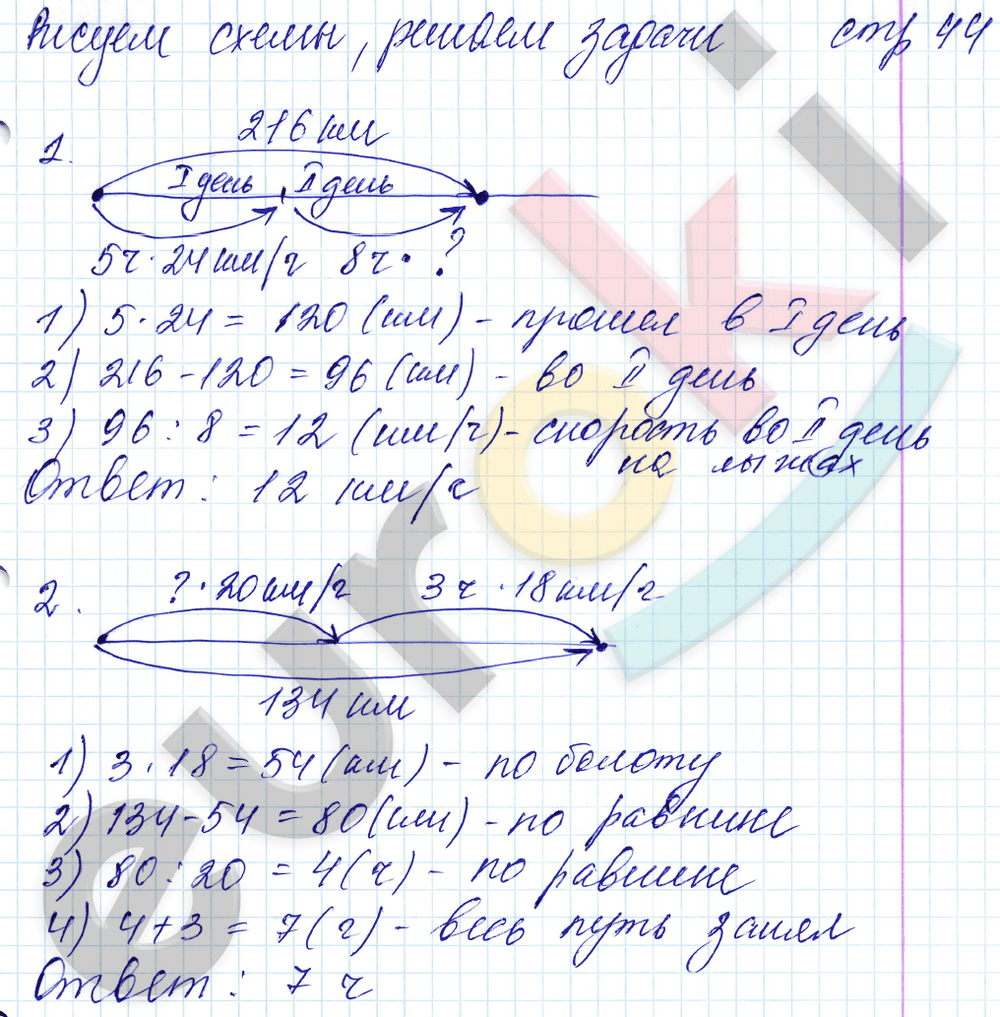 Рисуем схемы, решаем задачи стр 44
1.
216 км
I день II день
5ч · 24 км/ч 8ч · ?
1) 5 · 24 = 120 (км) - прошел в I день
2) 216 - 120 = 96 (км) - во II день
3) 96 : 8 = 12 (км/ч) - скорость во II день
на лыжах
Ответ: 12 км/ч
2.
? · 20 км/ч 3 ч · 18 км/ч
134 км
1) 3 · 18 = 54 (км) - по болоту
2) 134 - 54 = 80 (км) - по равнине
3) 80 : 20 = 4 (ч) - по равнине
4) 4 + 3 = 7 (ч) - весь путь занял
Ответ: 7 ч
euroki